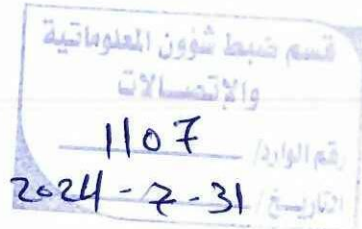 قسم ضبط شؤون المعلوماتية
والإتصالات
رقم الوارد/ 1107
التاريخ/ 2024-7-31